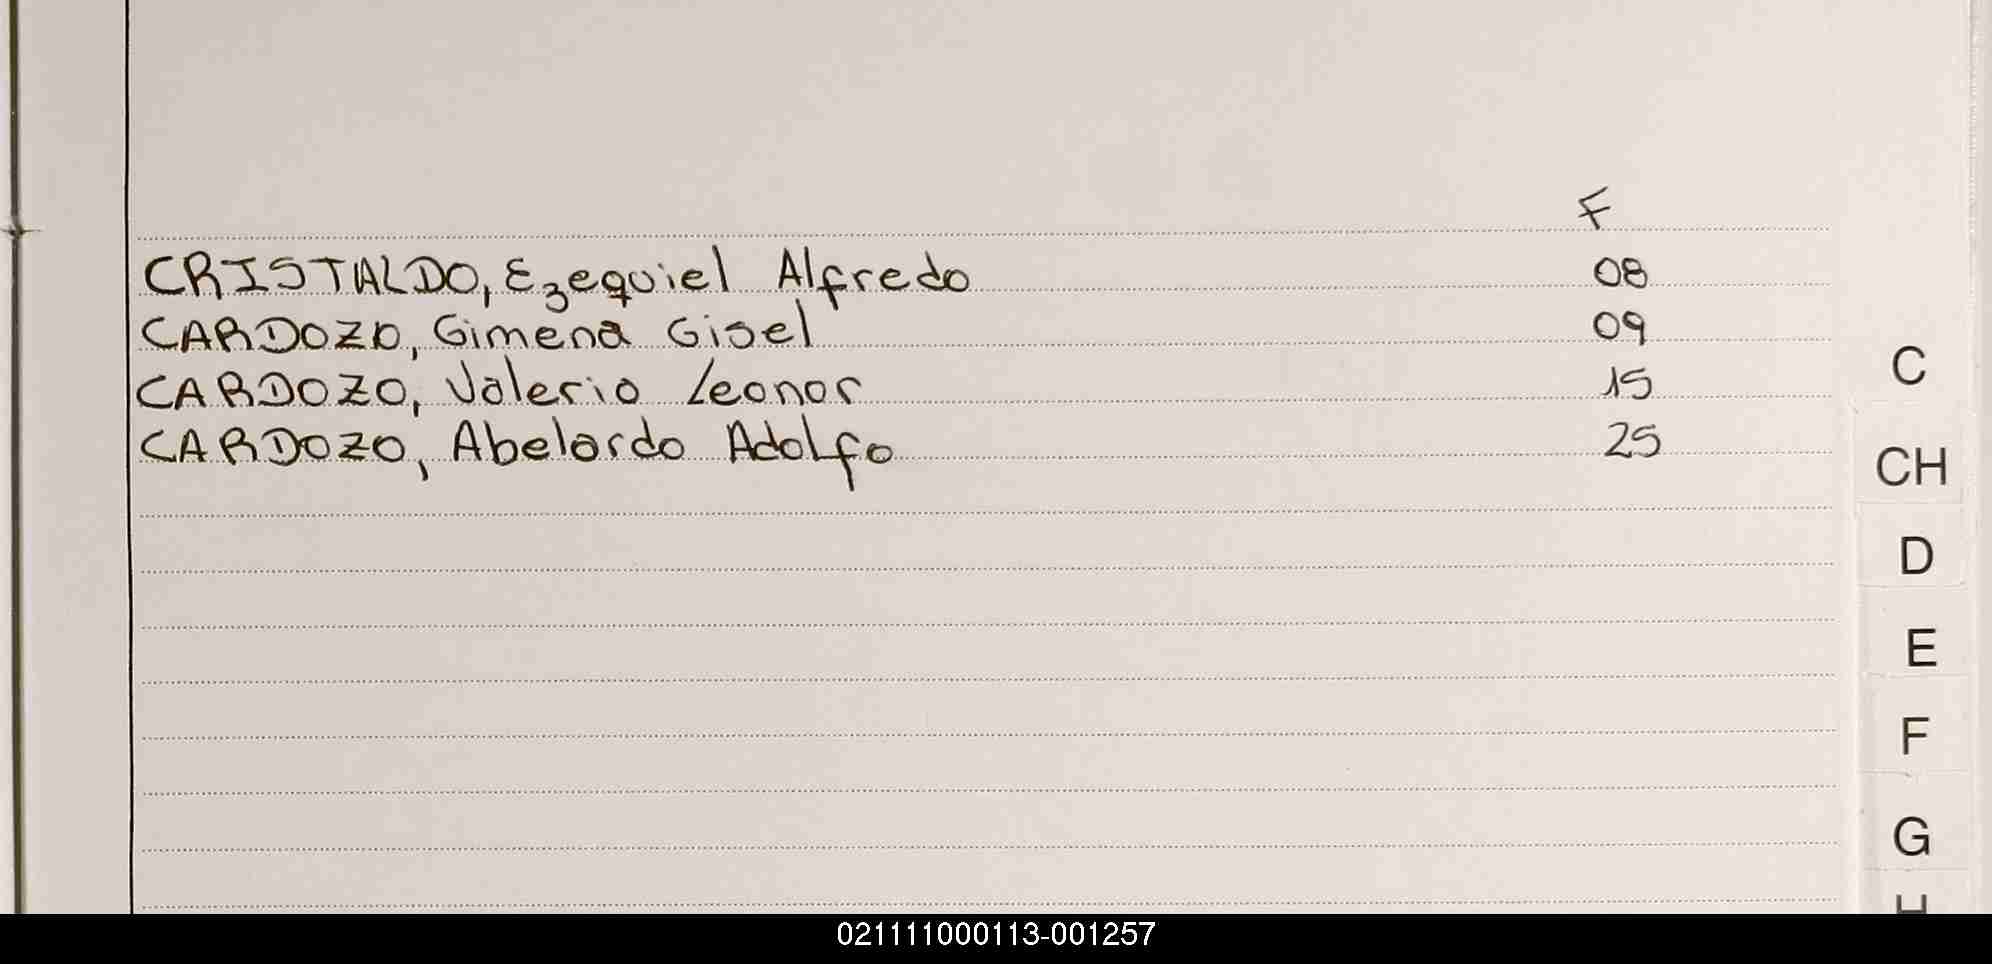 F
CRISTALDO, Ezequiel Alfredo 08
CARDOZO, Gimena Gisel 09
CARDOZO, Valeria Leonor 15
CARDOZO, Abelardo Adolfo 25
C
CH
D
E
F
G
H
021111000113-001257